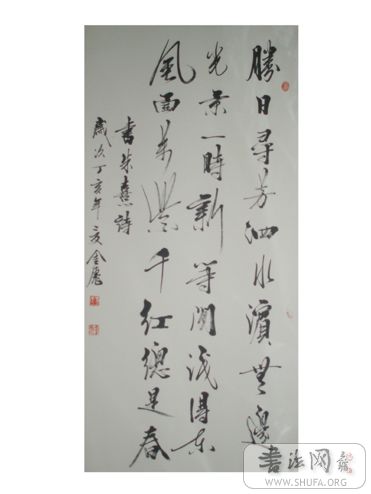 勝日尋芳泗水濱無邊
光景一時新等閒識得東
風面萬紫千紅總是春
書朱熹詩
歲次丁亥年
書法网
WWW.SHUFA.ORG